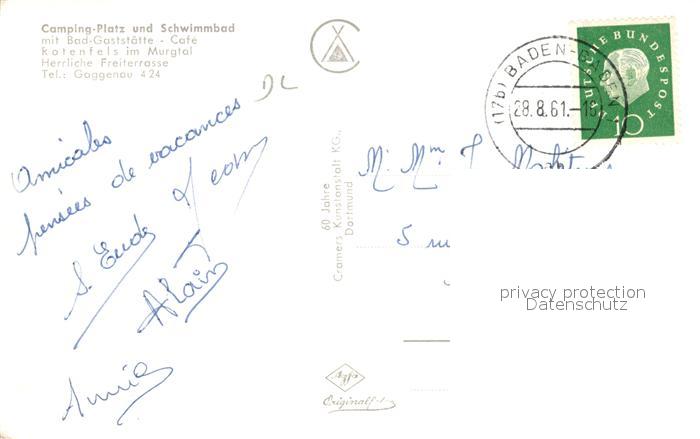 Camping-Platz und Schwimmbad
mit Bad-Gaststätte - Café
Rotenfels im Murgtal
Herrliche Freiterrasse
Tel.: Gaggenau 424
DL
Amicales
pensées de vacances
Alain
Annie
60 Jahre
Cramers Kunstanstalt KG.,
Dortmund
Agfa
Original
(17b) BADEN-BADEN
28.8.61.-18
DEUTSCHE BUNDESPOST
10
M. Mme
5 rue
privacy protection
Datenschutz